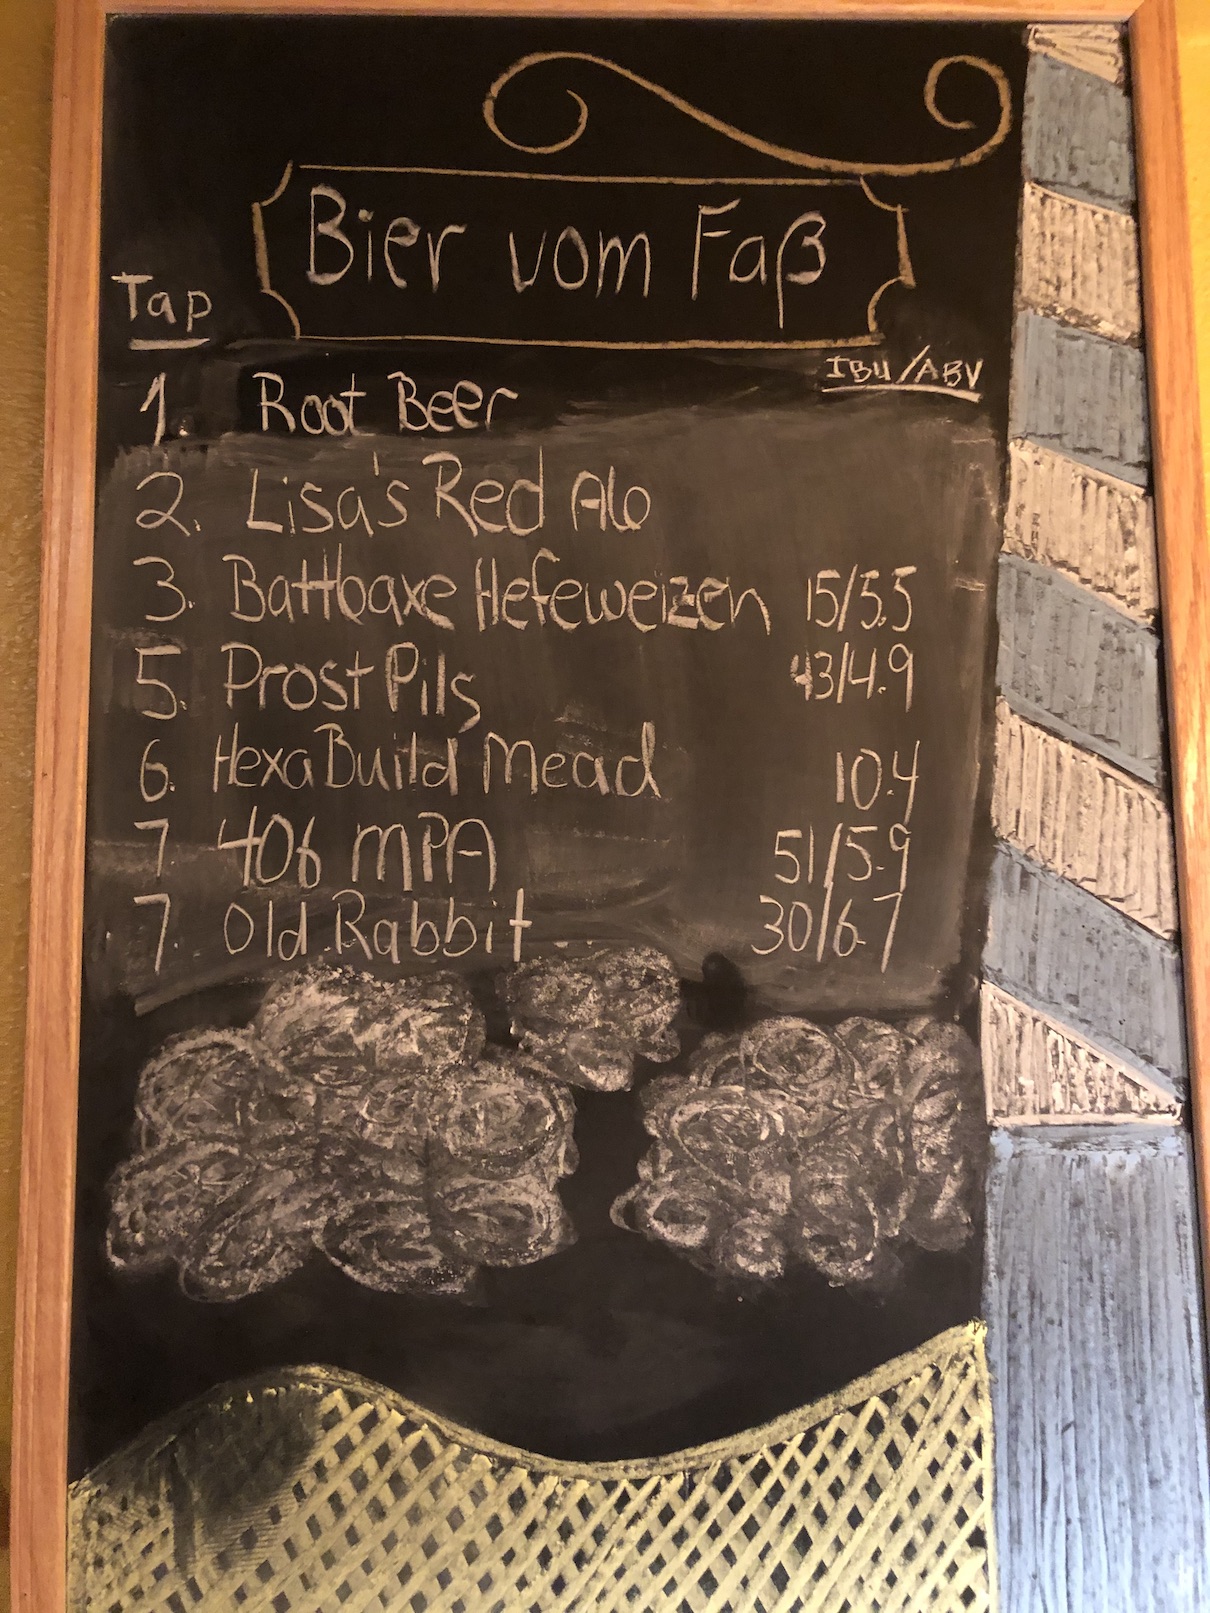 Bier vom Faß
Tap
IBU/ABV
1. Root Beer
2. Lisa's Red Ale
3. Battleaxe Hefeweizen 15/5.5
5. Prost Pils 43/4.9
6. Hexa Build Mead 10.4
7 406 MPA 51/5.9
7. Old Rabbit 30/6.7